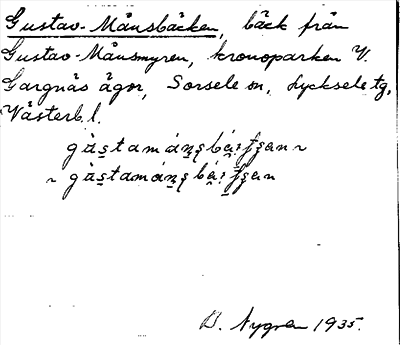 Gustav-Månsbäcken, bäck från
Gustav-Månsmyren, kronoparken V.
Gargnäs ägor, Sorsele sn, Lycksele tg,
Västerb. l.
B. Nygren 1935.